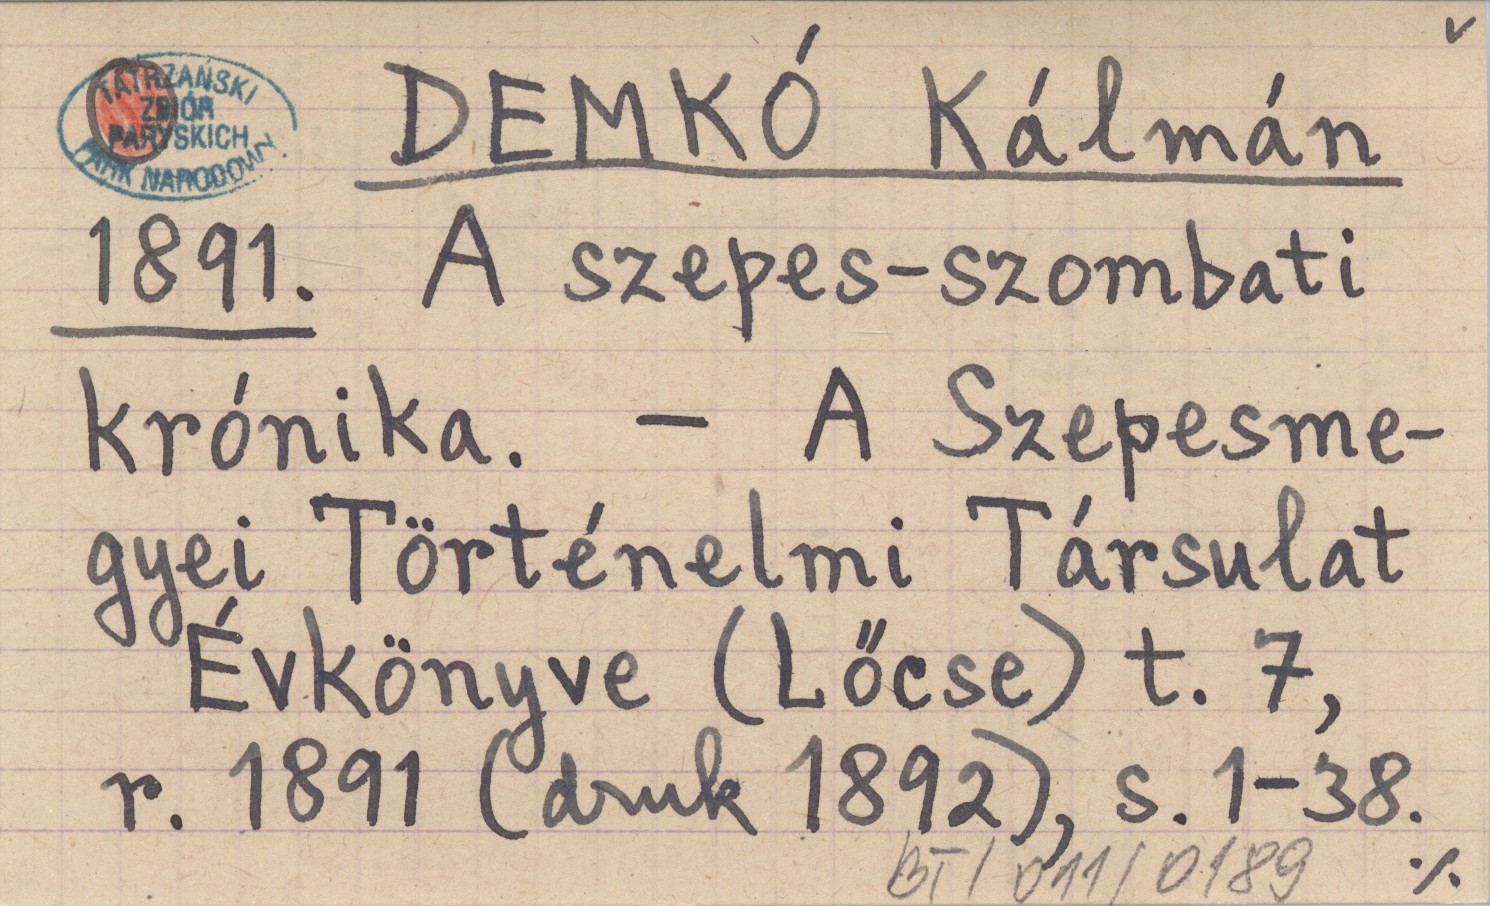 v
TATRZAŃSKI
ZBIÓR
PARYSKICH
PARK NARODOWY
DEMKÓ Kálmán
1891. A szepes-szombati
krónika. – A Szepesme-
gyei Történelmi Társulat
Évkönyve (Lőcse) t. 7,
r. 1891 (druk 1892), s. 1–38.
BT/011/0189 ·/.